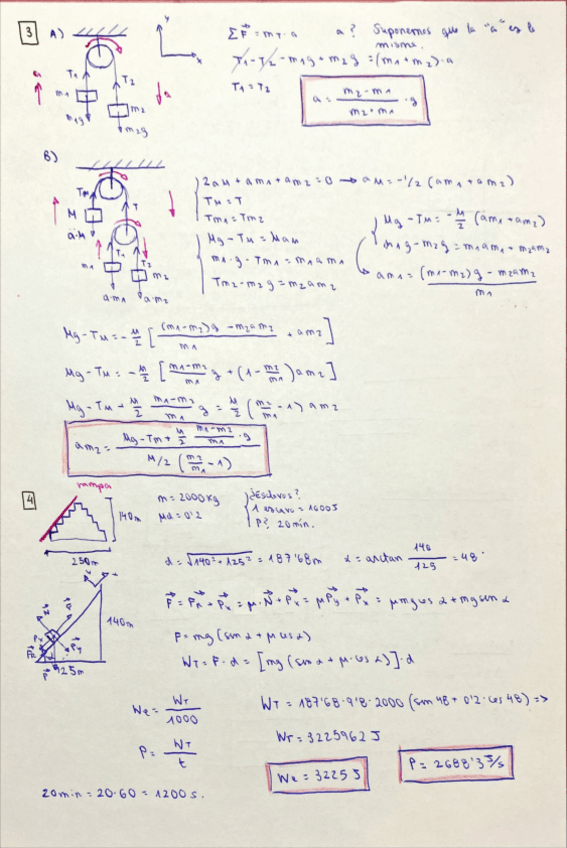 3 A)
Y
X
ΣF⃗ = m_T · a    a? Suponemos que la "a" es la misma.
T1 - T2 - m1g + m2g = (m1 + m2) · a
T1 = T2
a = (m2 - m1)/(m2 + m1) · g
a T1 T2 a
m1 m2
m1g m2g
B)
TM T
M
a·M
T1 T2
m1 m2
a·m1 a·m2
2aM + am1 + am2 = 0 → aM = -1/2 (am1 + am2)
TM = T
Tm1 = Tm2
Mg - TM = MaM
m1·g - Tm1 = m1am1
Tm2 - m2g = m2am2
Mg - TM = -M/2 (am1 + am2)
m1g - m2g = m1am1 + m2am2
am1 = ((m1 - m2)g - m2am2)/m1
Mg - TM = -M/2 [((m1 - m2)g - m2am2)/m1 + am2]
Mg - TM = -M/2 [(m1 - m2)/m1 g + (1 - m2/m1) am2]
Mg - TM + M/2 (m1 - m2)/m1 g = M/2 (m2/m1 - 1) am2
am2 = (Mg - TM + M/2 (m1 - m2)/m1 · g)/(M/2 (m2/m1 - 1))
4
rampa
140m
250m
m = 2000kg
μd = 0'2
¿Esclavos?
1 esclavo = 1000J
P? 20min.
d = √(140² + 125²) = 187'68m    α = arctan 140/125 = 48°
140m
125m
F⃗ = P⃗R + P⃗x = μ·N⃗ + P⃗x = μP⃗y + P⃗x = μmgcos α + mgsen α
F = mg (sen α + μ cos α)
WT = F · d = [mg (sen α + μ·cos α)]·d
We = WT/1000
WT = 187'68·9'8·2000 (sen 48 + 0'2·cos 48) =>
WT = 3225962 J
P = WT/t
We = 3225 J
P = 2688'3 J/s
20min = 20·60 = 1200 s.